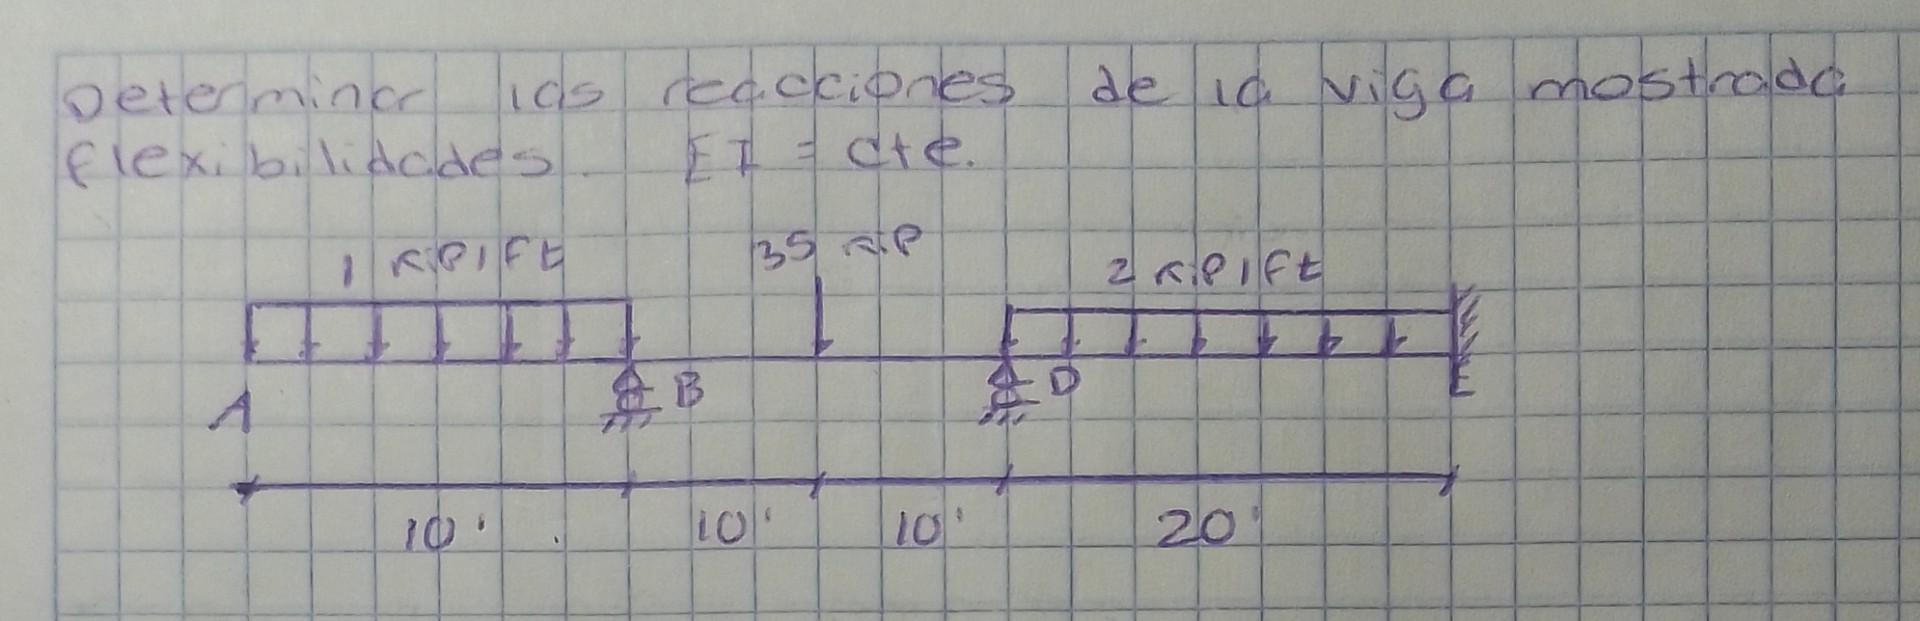 Determinar las reacciones de la viga mostrada
flexibilidades. EI = cte.
1 kip/ft 35 kip 2 kip/ft
A B D E
10' 10' 10' 20'